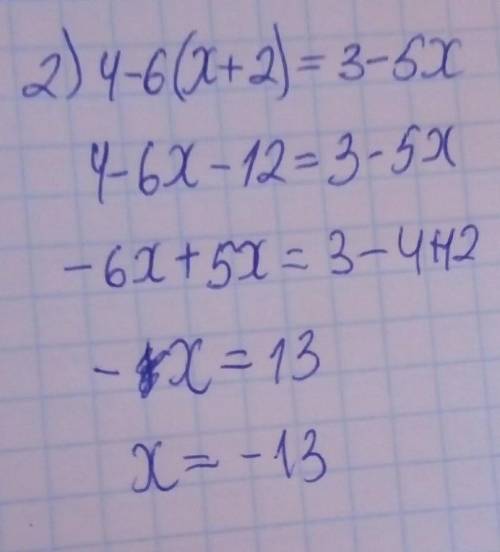 2) 4-6(x+2)=3-5x
4-6x-12=3-5x
-6x+5x=3-4+12
-x=13
x=-13